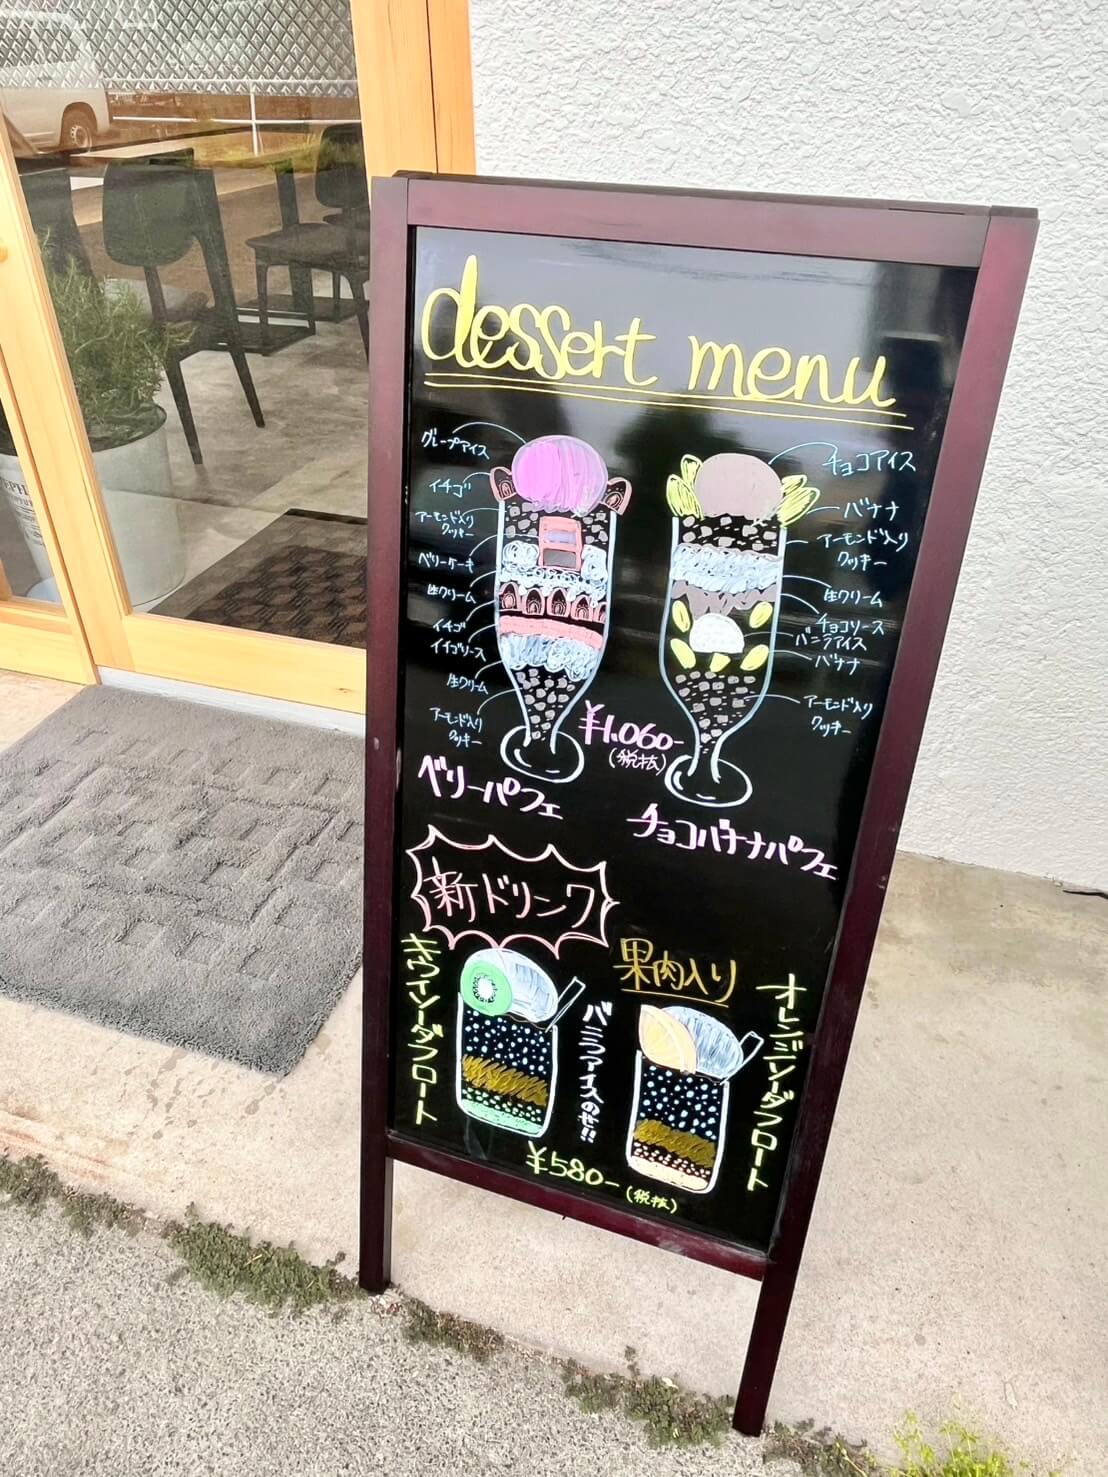 dessert menu
グレープアイス
イチゴ
アーモンド入り
クッキー
ベリーケーキ
生クリーム
イチゴ
イチゴソース
生クリーム
アーモンド入り
クッキー
チョコアイス
バナナ
アーモンド入り
クッキー
生クリーム
チョコソース
バニラアイス
バナナ
アーモンド入り
クッキー
¥1,060-
(税抜)
ベリーパフェ
チョコバナナパフェ
新ドリンク
果肉入り
キウイソーダフロート
バニラアイスのせ!!
オレンジソーダフロート
¥580-(税抜)